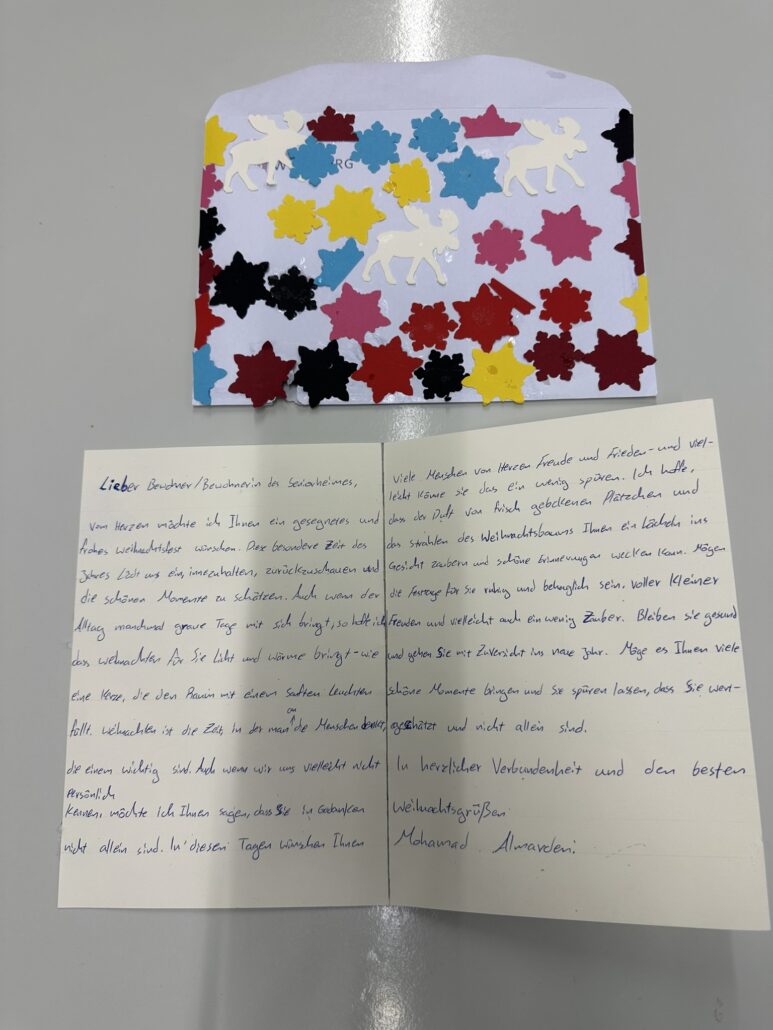 W RG
Lieber Bewohner/Bewohnerin des Seniorheimes,
vom Herzen möchte ich Ihnen ein gesegnetes und
frohes Weihnachtsfest wünschen. Diese besondere Zeit des
Jahres lädt uns ein, innezuhalten, zurückzuschauen und
die schönen Momente zu schätzen. Auch wenn der
Alltag manchmal graue Tage mit sich bringt, so hoffe ich
dass weihnachten für Sie Licht und wärme bringt - wie
eine Kerze, die den Raum mit einem sanften Leuchten
füllt. Weihnachten ist die Zeit, in der man an die Menschen denkt,
die einem wichtig sind. Auch wenn wir uns vielleicht nicht
persönlich
kennen, möchte ich Ihnen sagen, dass Sie in Gedanken
nicht allein sind. In diesen Tagen wünschen Ihnen
viele Menschen von Herzen Freude und Frieden - und viel-
leicht können sie das ein wenig spüren. Ich hoffe,
dass der Duft von frisch gebackenen Plätzchen und
das strahlen des Weihnachtsbaums Ihnen ein Lächeln ins
Gesicht zaubern und schöne Erinnerungen wecken kann. Mögen
die Festtage für Sie ruhig und behaglich sein, voller kleiner
Freuden und vielleicht auch ein wenig Zauber. Bleiben sie gesund
und gehen Sie mit Zuversicht ins neue Jahr. Möge es Ihnen viele
schöne Momente bringen und Sie spüren lassen, dass Sie wert-
geschätzt und nicht allein sind.
In herzlicher Verbundenheit und den besten
Weihnachtsgrüßen
Mohamad Almardeni